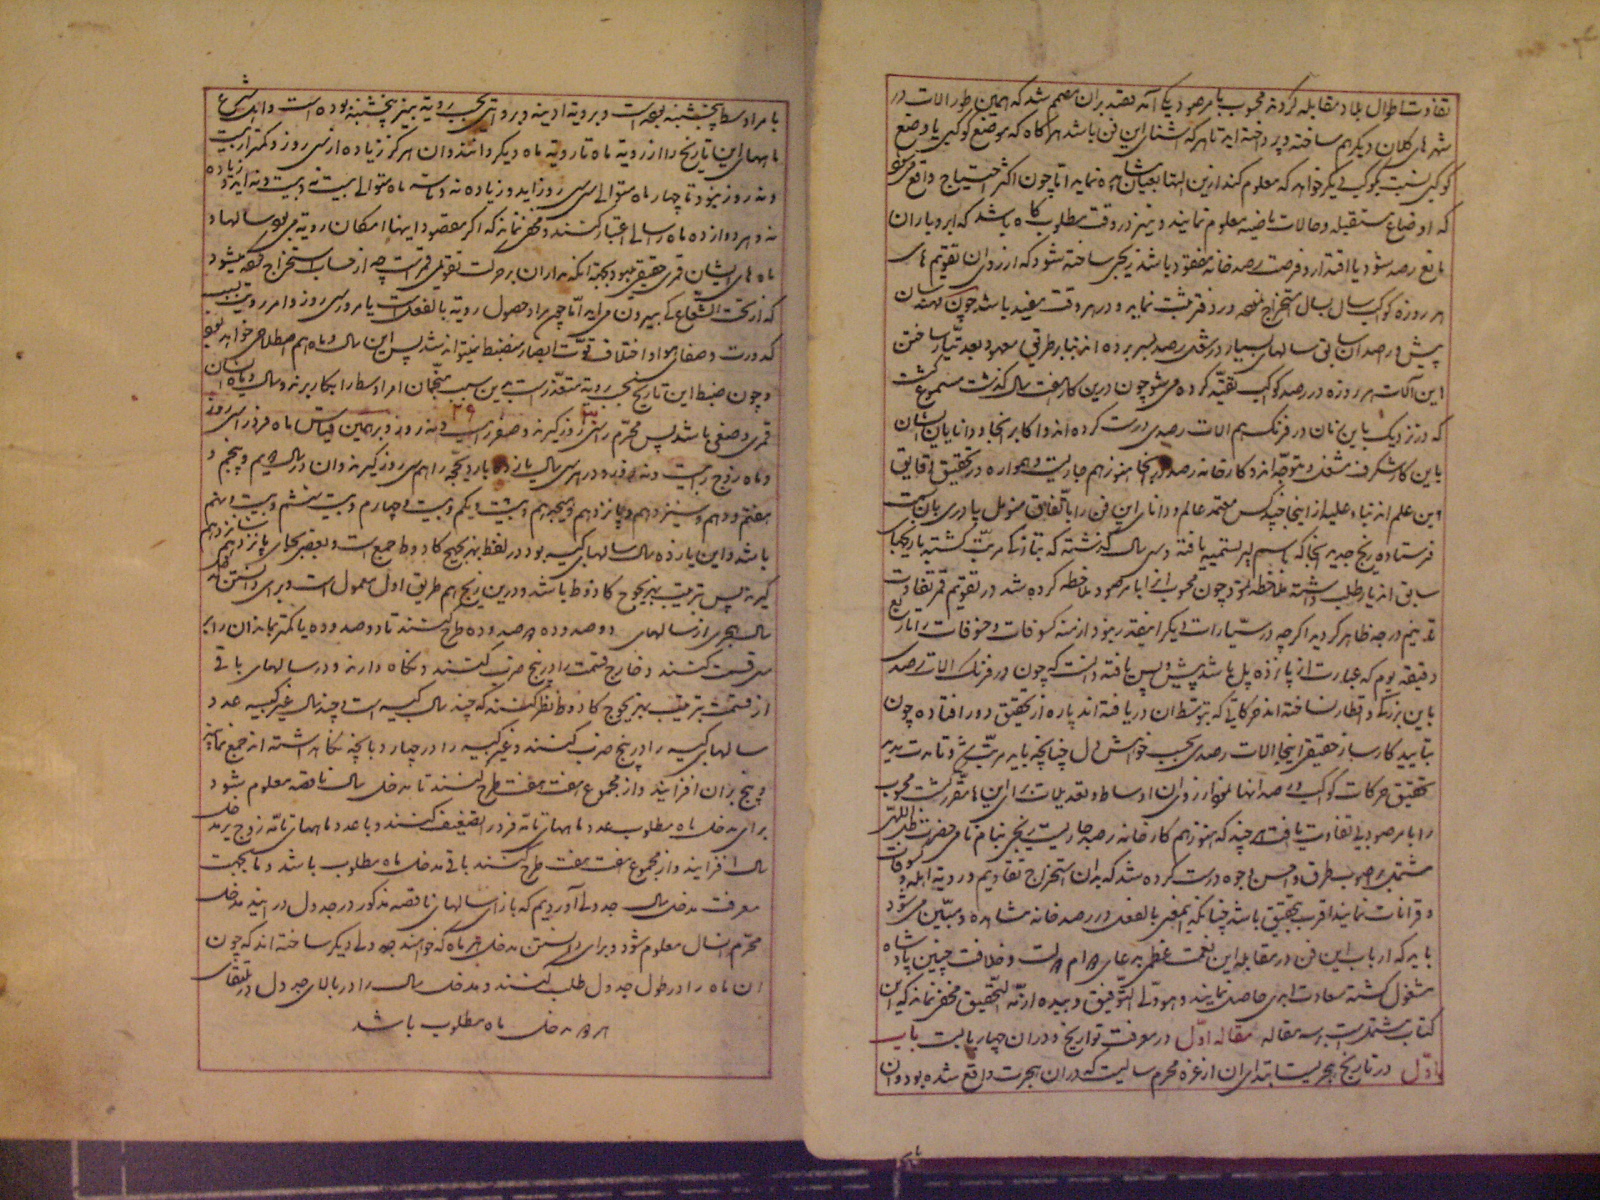 تفاوت اطوال بلاد مقابله کردند محسوب با مرصود یکی آمد بعد بران مصمم شد که همین طور الات در
شهرهای کلان دیگر هم ساخته و پرداخته اید تا هر که آشنای این فن باشد هرگاه که موضع کوکبی یا وضع
کوکبی نسبت بکوکبی دیگر خواهد که معلوم کند ازین التها بعیان مشاهده نماید اما چون اکثر احتیاج واقع می شود
که اوضاع مستقبله و حالات ماضیه معلوم نمایند و نیز در وقت مطلوب گاه باشد که ابر و باران
مانع رصد شود یا اقتدار و فرصت رصد خانه مفقود باشد زیجی ساخته شود که از روی ان تقویم های
هر روزه کواکب سال بسال استخراج نموده در دفتر ثبت نمایند و در هر وقت مفید باشد چون
پیش و رصدان سابق سالهای بسیار در شغل رصد بسر برده اند بنابر طریق معهود بعد تیار ساختن
این آلات هر روزه در رصد کواکب تقید کرده می شد چون درین کار هفت سال گذشت مسموع گشت
که در نزدیک باین زمان در فرنگ هم الات رصدی درست کرده اند و اکابر انجا و دانایان ایشان
باین کار شگرف مشغول و متوجه اند و کارخانه رصد در انجا هنوز هم جاریست و همواره در تحقیق دقایق
این علم اند بناء علیه از اینجا چند کس معتمد عالم و دانای این فن را باتفاق منوئل پادری بان سمت
فرستاده زیج جدید انجا که باسم لیر تسمیه یافته و سی سال گذشته که بتازگی مرتب گشته با زیجهای
سابق اند یار طلب داشته ملاحظه نمود چون محسوب از انرا با مرصود ملاحظه کرده شد در تقویم قمر تفاوت
قد نیم درجه ظاهر گردید اگرچه در سیارات دیگر اینقدر نبود از منه کسوفات و خسوفات را تا ربع
دقیقه یوم که عبارت از پانزده پل باشد پیش و پس یافته دانست که چون در فرنگ الات رصدی
باین بزرگی و قطار نساخته اند حرکاتی که بتوسط ان دریافته اند پاره از تحقیق دور افتاده چون
بتایید کارساز حقیقی اینجا الات رصدی بحسب خواهش دل چنانچه باید مرتب شد و تا مدت مدید
تحقیق حرکات کواکب و رصد انها نموده از روی ان اوساط و تعدیلات برای اینها مقرر گشت محسوب
را با مرصود بی تفاوت یافت هر چند که هنوز هم کارخانه رصد جاریست زیجی بنام نامی حضرت ظل اللهی
مشتمل بر اصوب طرق و احسن وجوه درست کرده شد که بدان استخراج تقاویم و رویت اهله و کسوفات
و قرانات نمایند اقرب بتحقیق باشد چنانکه بمعنی بالفعل در رصد خانه مشاهده و مبین می شود
باید که ارباب این فن در مقابله این نعمت عظمی بدعای دوام دولت و خلافت چنین پادشاه
مشغول گشته سعادت ابدی حاصل نمایند و هو ولی التوفیق و بیده ازمة التحقیق مخفی نماند که این
کتاب مشتمل است بر سه مقاله مقاله اول در معرفت تواریخ و دران چهار بابست باب
اول در تاریخ هجری ست ابتدای ان از غره محرم سالیست که دران هجرت واقع شده بود و ان
با مر اوسط پنجشنبه بوده است و برویه ادینه و بروایتی بحسب رویه نیز پنجشنبه بوده است و اهل شرع
ماههای این تاریخ را از رویه ماه تا رویه ماه دیگر دانند و ان هرگز زیاده از سی روز و کمتر از بیست
و نه روز نبود تا چهار ماه متوالی سی سی روز اید و زیاده نه و تا سه ماه متوالی بیست نه و بیست و نه اید و زیاده
نه و هر دوازده ماه را سالی اعتبار کنند و مخفی نماند که اگر مقصود اینها امکان رویه می بود سالها و
ماه های ایشان قمری حقیقی میبود بجهة انکه مدار ان بر حرکت تقویمی قمر است چه از حساب استخراج کرده میشود
که از تحت الشعاع کی بیرون می اید اما چون مراد حصول رویه بالفعل است یا مرور سی روز و امر رویت بسبب
کدورت و صفای هوا و اختلاف قوت ابصار منضبط نمیتواند شد پس این سال و ماه هم اصطلاحی خواهد بود
و چون ضبط این تاریخ بحسب رویه متعذر است بدین سبب منجمان امر اوسط را بکار برند و سال و ماه ایشان
قمری وصفی باشد پس محرم را سی روز گیرند و صفر را بیست و نه روز و بر همین قیاس ماه فرد را سی روز
۳۰ ۲۹
و ماه زوج را بیست و نه روز و در هر سی سال یازده بار ذیحجه را هم سی روز گیرند و ان در سال دویم و پنجم و
هفتم و دهم و سیزدهم و پانزدهم و هیجدهم و بیست و یکم و بیست و چهارم و بیست و ششم و بیست و نهم
باشد و این یازده سال سالهای کبیسه بود در لفظ بهزیجوح کادوط جمع است و بعضی بجای پانزدهم شانزدهم
گیرند پس ترتیب بهزیجوح کادوط باشد و درین زیج هم طریق اول معمول است و برای دانستن مدخل
سال هجری از سالهای دوصد و ده دوصد و ده طرح کنند تا دوصد و ده یا کمتر بماند ان را بر
سی قسمت کنند و خارج قسمت را در پنج ضرب کنند و نگاه دارند و در سالهای باقی
از قسمت بترتیب بهزیجوح کادوط نظر کنند که چند سال کبیسه است و چند سال غیر کبیسه عدد
سالهای کبیسه را در پنج ضرب کنند و غیر کبیسه را در چهار و با پنجه نگاهداشته اند جمع نمایند
و پنج بران افزایند و از مجموع هفت هفت طرح کنند تا مدخل سال ناقصه معلوم شود
برای مدخل ماه مطلوب عدد ماههای تامه فرد را تضعیف کنند و با عدد ماههای تامه زوج بر مدخل
سال افزایند و از مجموع هفت هفت طرح کنند باقی مدخل ماه مطلوب باشد و ما بجهت
معرفت مدخل سال جدولی آوردیم که بازای سالهای ناقصه مذکور در جدول در ایند مدخل
محرم ان سال معلوم شود و برای دانستن مدخل هر ماه که خواهند جدولی دیگر ساخته اند که چون
ان ماه را در طول جدول طلب کنند و مدخل سال را در بالای جدول در ملتقای
هر دو مدخل ماه مطلوب باشد